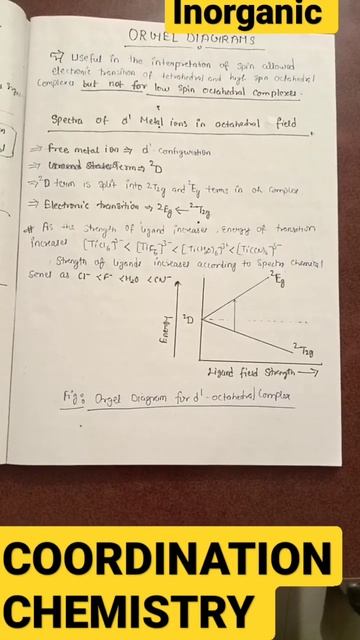 Inorganic
ORGEL DIAGRAMS
Useful in the interpretation of spin allowed
electronic transition of tetrahedral and high spin octahedral
complexes but not for low spin octahedral complexes.
Spectra of d¹ Metal ions in octahedral field
⇒ Free metal ion ⇒ d¹ configuration
⇒ Ground State Term ⇒ ²D
⇒ ²D term is split into ²T₂g and ²Eg terms in oh complex
⇒ Electronic transition ⇒ ²Eg ← ²T₂g
# As the strength of ligand increases, Energy of transition
increases [TiCl₆]³⁻ < [TiF₆]³⁻ < [Ti(H₂O)₆]³⁺ < [Ti(CN)₆]³⁻
Strength of ligands increases according to Spectro Chemical
Series as Cl⁻ < F⁻ < H₂O < CN⁻
²Eg
Energy
²D
²T₂g
Ligand field Strength →
Fig: Orgel Diagram for d¹-octahedral Complex
COORDINATION
CHEMISTRY